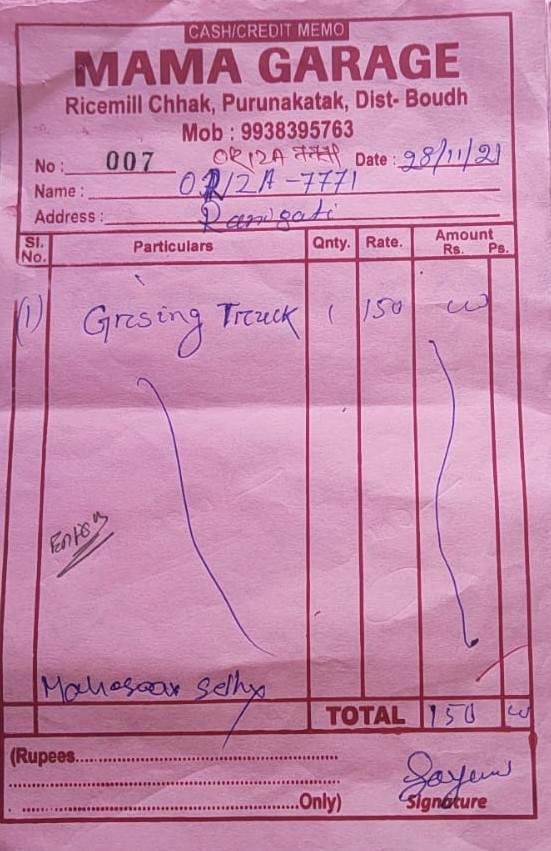 CASH/CREDIT MEMO
MAMA GARAGE
Ricemill Chhak, Purunakatak, Dist- Boudh
Mob : 9938395763
No : 007 OR12A Date : 28/11/21
Name : OR12A-7771
Address : Ranigati
Sl. No. Particulars Qnty. Rate. Amount Rs. Ps.
(1) Gresing Truck 1 150
TOTAL 150
(Rupees
Only) Signature